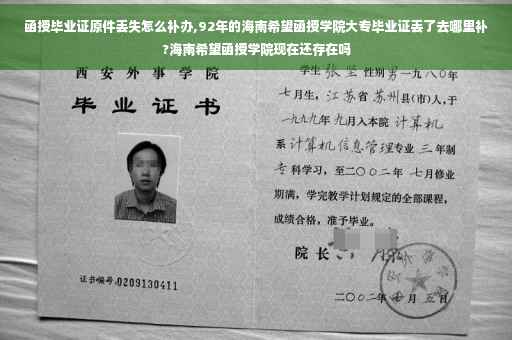 函授毕业证原件丢失怎么补办,92年的海南希望函授学院大专毕业证丢了去哪里补
?海南希望函授学院现在还存在吗
西安外事学院
毕业证书
证书编号:0209130411
学生 张坚 性别 男 一九八〇年
七月生, 江苏省 苏州县(市)人,于
一九九九年九月入本院 计算机
系 计算机信息管理专业 三年制
专科学习,至二〇〇二年 七月修业
期满,学完教学计划规定的全部课程,
成绩合格,准予毕业。
院长
二〇〇二年 月五日